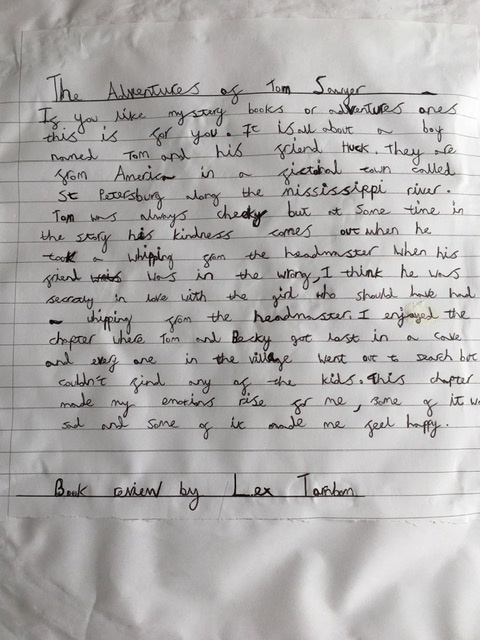 The Adventures of Tom Sawyer
If you like mystery books or adventures ones
this is for you. It is all about a boy
named Tom and his friend Huck. They are
from America in a fictional town called
St Petersburg along the mississippi river.
Tom was always cheeky but at some time in
the story his kindness comes out when he
took a whipping from the headmaster when his
friend was in the wrong, I think he was
secretly in love with the girl who should have had
a whipping from the headmaster. I enjoyed the
chapter where Tom and Becky got lost in a cave
and every one in the village went out to search but
couldn't find any of the kids. This chapter
made my emotions rise for me, some of it w
sad and some of it made me feel happy.
Book review by Lex